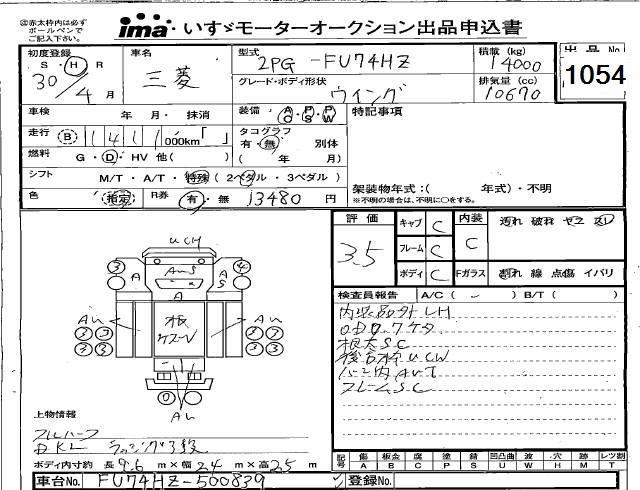 ※赤太枠内は必ず ボールペンで ご記入下さい。
ima いすゞモーターオークション出品申込書
初度登録 S・H・R 30/4月
車名 三菱
型式 2PG-FU74HZ
積載 (kg) 14000
出品No 1054
グレード・ボディ形状 ウイング
排気量 (cc) 10670
車検 年 月・抹消
装備 AC・PS・PW
特記事項
走行 B 1411,000km「 」
タコグラフ 有・無 別体 ( 年 月)
燃料 G・D・HV 他( )
シフト M/T・A/T・特殊 (2ペダル・3ペダル)
架装物年式:( 年式)・不明
※不明の場合は、不明に○をする。
色 指定 R券 有・無 13480 円
評価 3.5
キャブ C 内装 C 汚れ 破れ
フレーム C
ボディ C Fガラス 割れ 線 点傷 イバリ
検査員報告 A/C ( ) B/T ( )
内装品外LH
根太SC
フレームSC
UCH
3 A 4 A S
A
Aw 根 Aw
3 3 3 3
0
Aw
上物情報
フルハーフ
ラッシング3段
ボディ内寸約 長9.6m×幅2.4m×高2.5m
記号 傷A 板B 腐C 塗P 錆S 凹凸曲U 波W 穴H 跡M レツ割T
車台No. FU74HZ-500839 登録No.